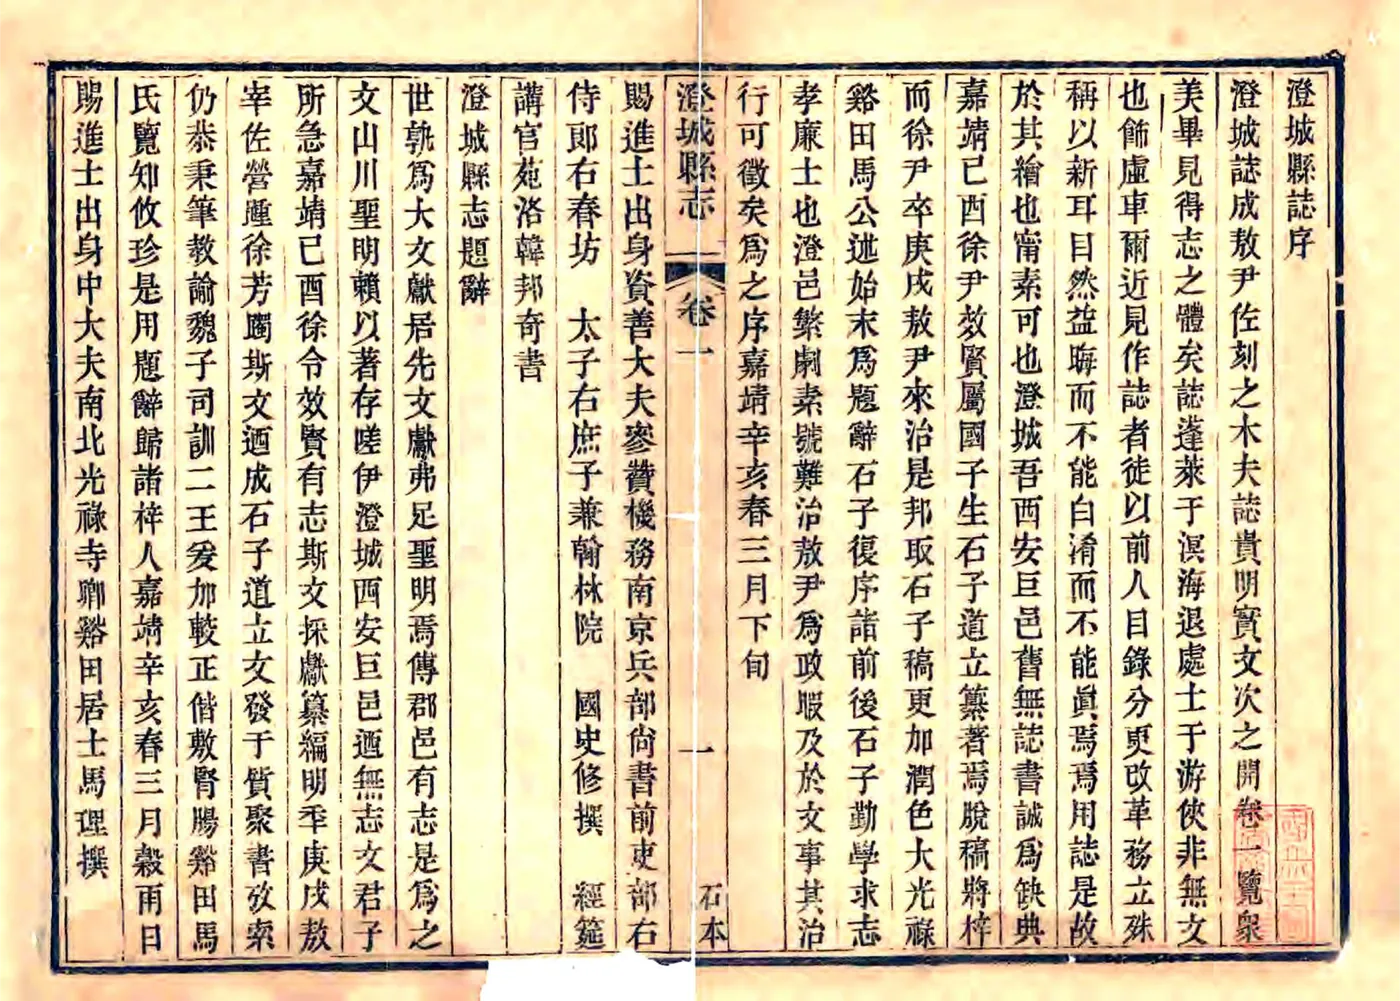 澄城縣誌序
澄城誌成敖尹佐刻之木夫誌貴明實文次之開卷一覽衆
美畢見得志之體矣誌蓬萊于溟海退處士于游俠非無文
也飾虛車爾近見作誌者徒以前人目錄分更改革務立殊
稱以新耳目然益晦而不能白淆而不能眞焉焉用誌是故
於其繪也甯素可也澄城吾西安巨邑舊無誌書誠爲缺典
嘉靖己酉徐尹效賢屬國子生石子道立纂著焉脫稿將梓
而徐尹卒庚戌敖尹來治是邦取石子稿更加潤色大光祿
谿田馬公述始末爲題辭石子復序諸前後石子勤學求志
孝廉士也澄邑繁劇素號難治敖尹爲政暇及於文事其治
行可徵矣爲之序嘉靖辛亥春三月下旬
澄城縣志 卷一 一 石本
賜進士出身資善大夫參贊機務南京兵部尚書前吏部右
侍郎右春坊 太子右庶子兼翰林院 國史修撰 經筵
講官苑洛韓邦奇書
澄城縣志題辭
世孰爲大文獻居先文獻弗足聖明焉傳郡邑有志是爲之
文山川聖明賴以著存嗟伊澄城西安巨邑迺無志文君子
所急嘉靖己酉徐令效賢有志斯文採獻纂編明年庚戌敖
宰佐營踵徐芳躅斯文迺成石子道立文發于質聚書攷索
仍恭秉筆教諭魏子司訓二王爰加較正偕敷腎腸谿田馬
氏覽知攸珍是用題辭歸諸梓人嘉靖辛亥春三月穀雨日
賜進士出身中大夫南北光祿寺卿谿田居士馬理撰